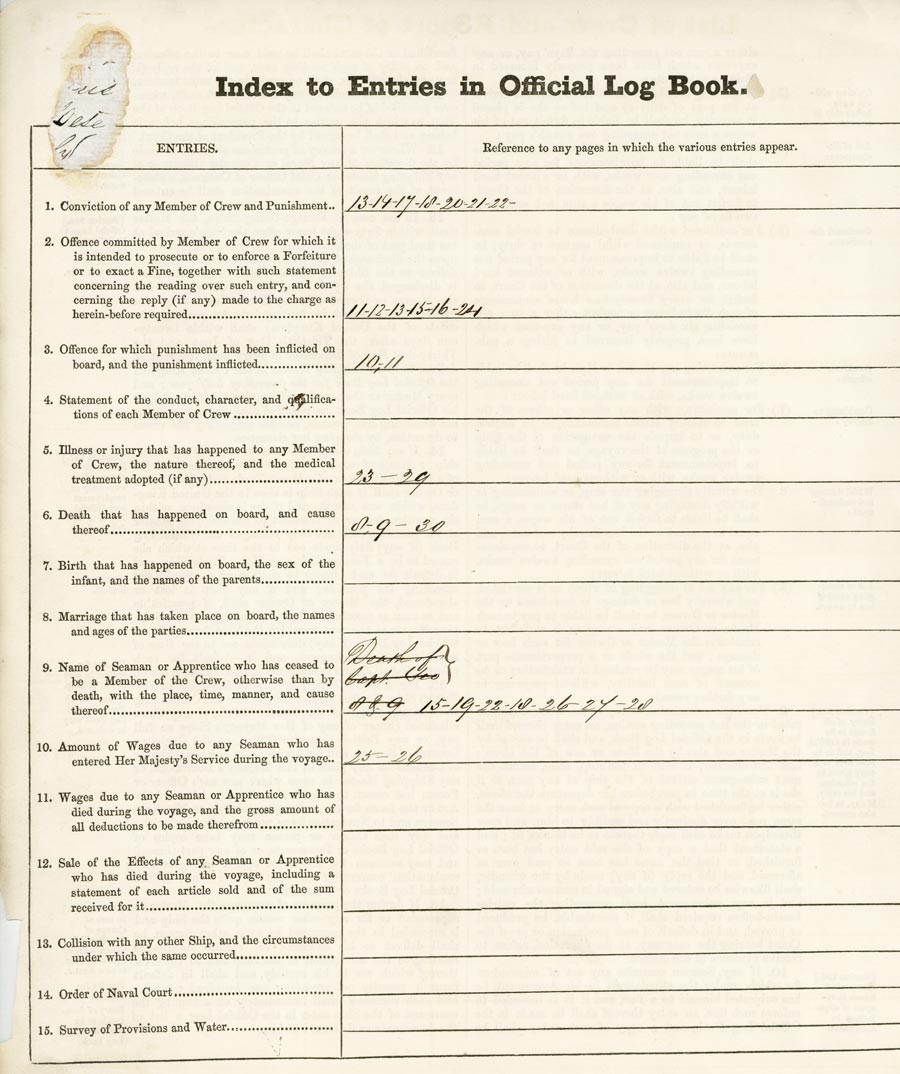 Index to Entries in Official Log Book.
ENTRIES.
Reference to any pages in which the various entries appear.
1. Conviction of any Member of Crew and Punishment..
13-14-17-18-20-21-22-
2. Offence committed by Member of Crew for which it
is intended to prosecute or to enforce a Forfeiture
or to exact a Fine, together with such statement
concerning the reading over such entry, and con-
cerning the reply (if any) made to the charge as
herein-before required
11-12-13-15-16-24
3. Offence for which punishment has been inflicted on
board, and the punishment inflicted
10,11
4. Statement of the conduct, character, and qualifica-
tions of each Member of Crew
5. Illness or injury that has happened to any Member
of Crew, the nature thereof, and the medical
treatment adopted (if any)
23 - 29
6. Death that has happened on board, and cause
thereof
8, 9 - 30
7. Birth that has happened on board, the sex of the
infant, and the names of the parents
8. Marriage that has taken place on board, the names
and ages of the parties
9. Name of Seaman or Apprentice who has ceased to
be a Member of the Crew, otherwise than by
death, with the place, time, manner, and cause
thereof
Death of
Capt. Geo
8 & 9 15-19-22-18-26-27-28
10. Amount of Wages due to any Seaman who has
entered Her Majesty's Service during the voyage..
25 - 26
11. Wages due to any Seaman or Apprentice who has
died during the voyage, and the gross amount of
all deductions to be made therefrom
12. Sale of the Effects of any Seaman or Apprentice
who has died during the voyage, including a
statement of each article sold and of the sum
received for it
13. Collision with any other Ship, and the circumstances
under which the same occurred
14. Order of Naval Court
15. Survey of Provisions and Water